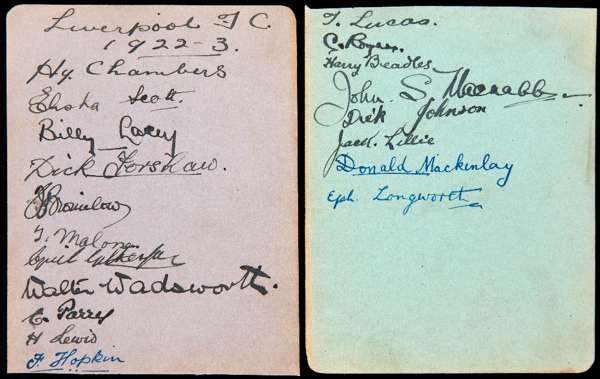 Liverpool F C.
1922-3.
Hy Chambers
Elisha Scott.
Billy Lacey
Dick Forshaw.
Bromilow
T. Malone
Cyril Gilhespy
Walter Wadsworth.
C. Parry
H Lewis
F. Hopkin
T. Lucas.
C. Rogers.
Harry Beadles
John. S. Macnabb.
Dick Johnson
Jack. Lillie
Donald Mackinlay
Eph. Longworth